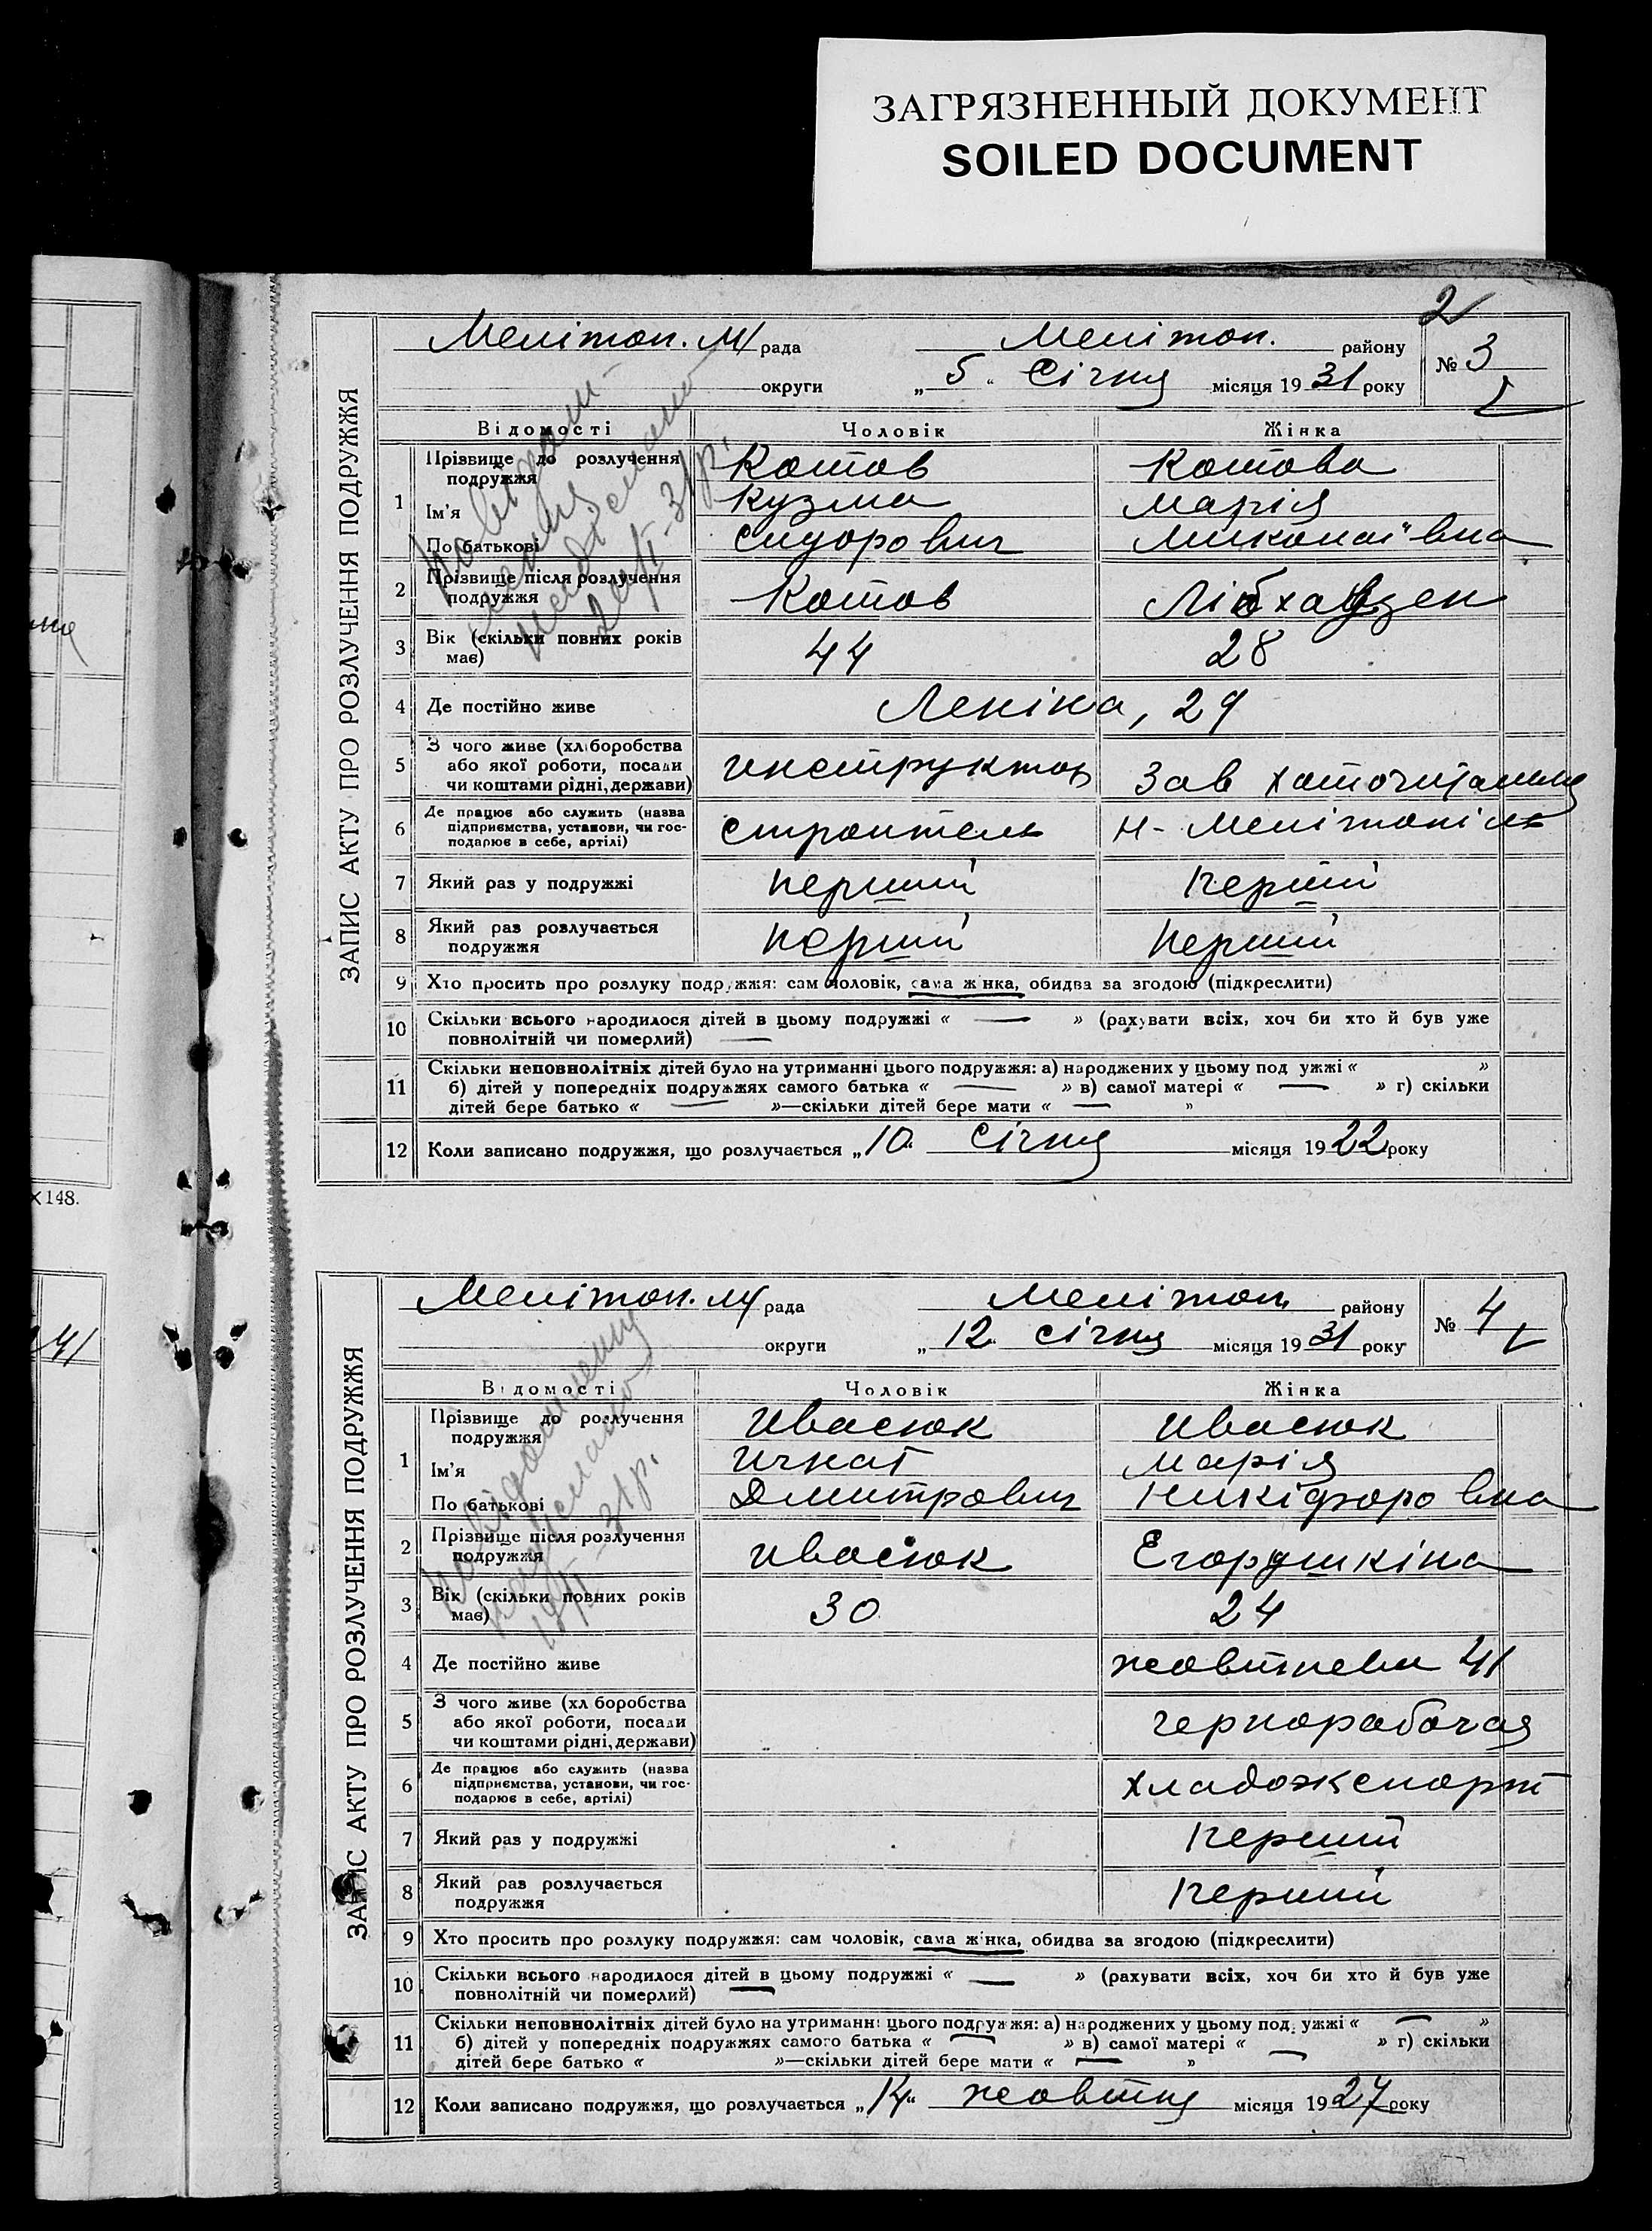 ЗАГРЯЗНЕННЫЙ ДОКУМЕНТ
SOILED DOCUMENT
2
ЗАПИС АКТУ ПРО РОЗЛУЧЕННЯ ПОДРУЖЖЯ
Мелітоп. М/ рада Мелітоп. району № 3
округи „5“ Січня місяця 1931 року
Відомості Чоловік Жінка
1 Прізвище до розлучення подружжя Котов Котова
Ім'я Кузма Марія
По батькові Сидорович Миколаївна
2 Прізвище після розлучення подружжя Котов Лібхавзен
3 Вік (скільки повних років має) 44 28
4 Де постійно живе Леніна, 29
5 З чого живе (хліборобства
або якої роботи, посади
чи коштами рідні, держави) инструктор Зав хаточитальня
6 Де працює або служить (назва
підприємства, установи, чи гос-
подарює в себе, артілі) строитель Н-Мелітопіль
7 Який раз у подружжі перший перший
8 Який раз розлучається
подружжя перший перший
9 Хто просить про розлуку подружжя: сам чоловік, сама жінка, обидва за згодою (підкреслити)
10 Скільки всього народилося дітей в цьому подружжі « — » (рахувати всіх, хоч би хто й був уже
повнолітній чи померлий) —
11 Скільки неповнолітніх дітей було на утриманні цього подружжя: а) народжених у цьому подружжі « »
б) дітей у попередніх подружжях самого батька « — » в) самої матері « — » г) скільки
дітей бере батько « — »—скільки дітей бере мати « — »
12 Коли записано подружжя, що розлучається „10“ Січня місяця 1922 року
×148.
41
ЗАПИС АКТУ ПРО РОЗЛУЧЕННЯ ПОДРУЖЖЯ
Мелітоп. М/ рада Мелітоп. району № 4
округи „12“ Січня місяця 1931 року
Відомості Чоловік Жінка
1 Прізвище до розлучення
подружжя Ивасюк Ивасюк
Ім'я Игнат Марія
По батькові Дмитрович Никіфоровна
2 Прізвище після розлучення
подружжя Ивасюк Егорушкіна
3 Вік (скільки повних років
має) 30 24
4 Де постійно живе жовтнева 41
5 З чого живе (хліборобства
або якої роботи, посади
чи коштами рідні, держави) чернорабочая
6 Де працює або служить (назва
підприємства, установи, чи гос-
подарює в себе, артілі) Хладоэкспорт
7 Який раз у подружжі перший
8 Який раз розлучається
подружжя перший
9 Хто просить про розлуку подружжя: сам чоловік, сама жінка, обидва за згодою (підкреслити)
10 Скільки всього народилося дітей в цьому подружжі « — » (рахувати всіх, хоч би хто й був уже
повнолітній чи померлий)
11 Скільки неповнолітніх дітей було на утриманні цього подружжя: а) народжених у цьому подружжі « — »
б) дітей у попередніх подружжях самого батька « — » в) самої матері « — » г) скільки
дітей бере батько « »—скільки дітей бере мати « — »
12 Коли записано подружжя, що розлучається „14“ жовтня місяця 1927 року